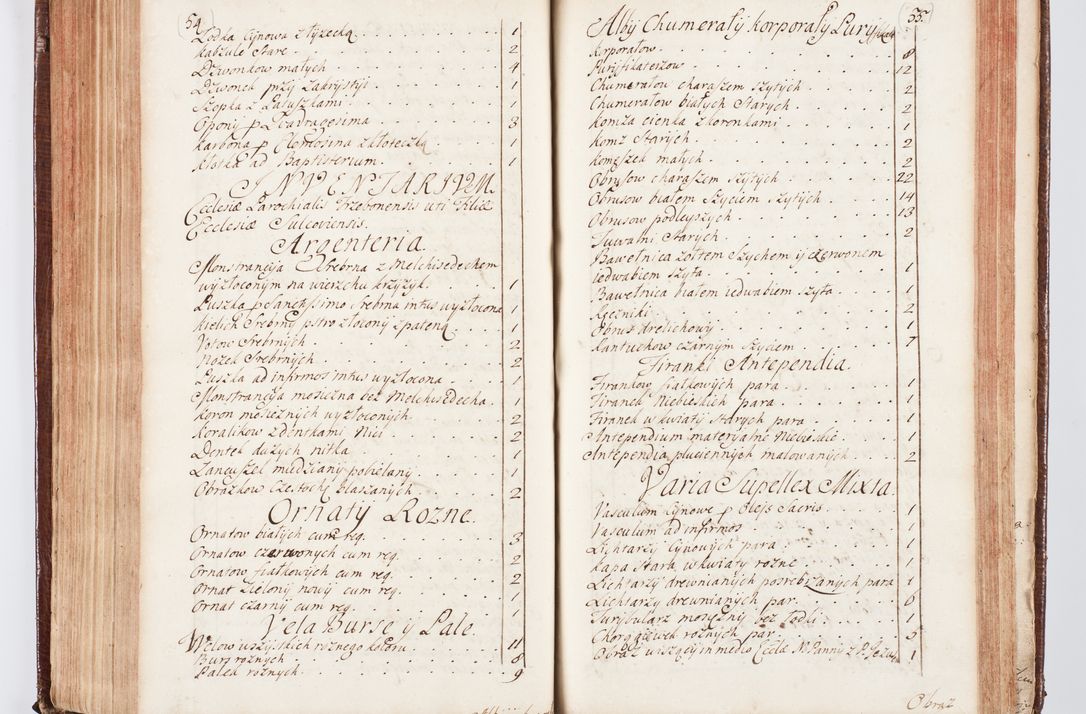 54.
Łodka Cynowa z łyzecką 1
Kabzule Stare 2
Dzwonkow małych 4
Dzwonek przy Zakrystyi 1
Szopka z Łatuszkami 1
Opony p Quadragesima 3
Karbona p Elemosina z kłoteczką 1
Klotka ad Baptisterium 1
INVENTARIUM
Ecclesiæ Parochialis Trzebonensis uti Filiæ
Ecclesiæ Sulcoviensis.
Argenteria.
Monstrancyia Srebrna z Melchisedechem
wyzłoconym na wierzchu krzyzyk 1
Puszka p Sanctissimo Srebrna intus wyzłocona 1
Kielich Srebrny pstro złocony z pateną 1
Votow Srebrnych 2
Nozek Srebrnych 2
Puszka ad infirmos intus wyzłocona 1
Monstrancyia mosiezna bez Melchisedecha 1
Koron mosieznych wyzłoconych 2
Koralikow z dentkami Nici 2
Dentek duzych nitka 1
Łancuszek miedziany pobielany 1
Obrazkow Czestocho blaszanych 2
Ornaty Rozne.
Ornatow białych cum req. 3
Ornatow czerwonych cum req. 2
Ornatow fiałkowych cum req. 2
Ornat zielony nowy cum req. 1
Ornat czarny cum req. 1
Vela Burse y Pale.
Welow wszystkich roznego koloru 11
Burs roznych 8
Palek roznych 9
55.
Alby Chumerały Korporały Pury
Korporałow 8
Puryfikaterzow 12
Chumerałow charasem szytych 2
Chumerałow białych Starych 2
Komza cienka z koronkami 1
Komz Starych 2
Komzszek małych 2
Obrusow charasem szytych 22
Obrusow białem Szyciem Szytych 14
Obrusow podleyszych 13
Tuwalni Starych 2
Bawełnica zołtem Szychem y czerwonem
iedwabiem szyta 1
Bawełnica białem iedwabiem szyta 1
Ręczniki 2
Obrus drelichowy 1
Rantuchow czarnym Szyciem 7
Firanki Antependia.
Firankow fiałkowych para 1
Firanek Niebieskich para 1
Firanek w kwiaty Starych para 1
Antependium materyalne Niebieskie 1
Antependia płuciennych malowanych 2
Varia Supellex Mixta.
Vasculum Cynowe p Oleis Sacris 1
Vasculum ad infirmos 1
Lichtarzy Cynowych para 1
Kapa Stara w kwiaty rozne 1
Lichtarzy drewnianych posrebrzanych para 1
Lichtarzy drewnianych par 6
Turybularz mosięzny bez Łodki 1
Chorągiewek roznych par 5
Obraz wiszący in medio Ecclæ N. Panny z P. Jezusem 1
Obraz